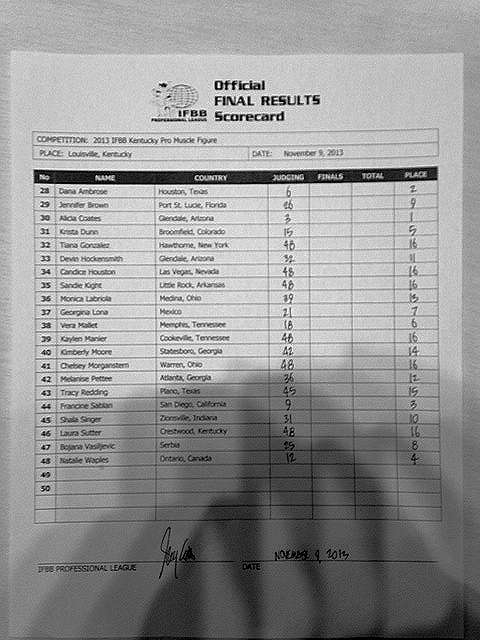 IFBB
PROFESSIONAL LEAGUE
Official
FINAL RESULTS
Scorecard
COMPETITION: 2013 IFBB Kentucky Pro Muscle Figure
PLACE: Louisville, Kentucky DATE: November 9, 2013
No NAME COUNTRY JUDGING FINALS TOTAL PLACE
28 Dana Ambrose Houston, Texas 6 2
29 Jennifer Brown Port St. Lucie, Florida 26 9
30 Alicia Coates Glendale, Arizona 3 1
31 Krista Dunn Broomfield, Colorado 15 5
32 Tiana Gonzalez Hawthorne, New York 48 16
33 Devin Hockensmith Glendale, Arizona 32 11
34 Candice Houston Las Vegas, Nevada 48 16
35 Sandie Kight Little Rock, Arkansas 48 16
36 Monica Labriola Medina, Ohio 39 13
37 Georgina Lona Mexico 21 7
38 Vera Mallet Memphis, Tennessee 18 6
39 Kaylen Manier Cookeville, Tennessee 48 16
40 Kimberly Moore Statesboro, Georgia 42 14
41 Chelsey Morganstern Warren, Ohio 48 16
42 Melanise Pettee Atlanta, Georgia 36 12
43 Tracy Redding Plano, Texas 45 15
44 Francine Sablan San Diego, California 9 3
45 Shala Singer Zionsville, Indiana 31 10
46 Laura Sutter Crestwood, Kentucky 48 16
47 Bojana Vasiljevic Serbia 25 8
48 Natalie Waples Ontario, Canada 12 4
49
50
NOVEMBER 9, 2013
IFBB PROFESSIONAL LEAGUE DATE